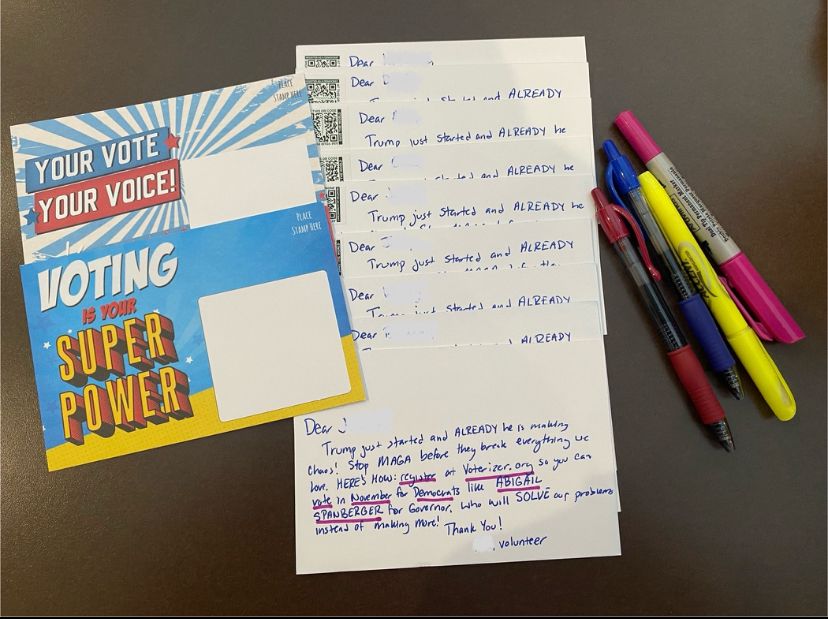 YOUR VOTE
YOUR VOICE!
PLACE
STAMP HERE
VOTING
IS YOUR
SUPER
POWER
PLACE
STAMP HERE
Dear
Dear
ALREADY
Dear
Trump just started and ALREADY he
Dear
started and ALREADY he
Dear
Trump just started and ALREADY he
Dear
Trump just started and ALREADY
Dear
Trump just started and ALREADY
Dear
ALREADY
Dear J
Trump just started and ALREADY he is making
chaos! Stop MAGA before they break everything we
love. HERE'S HOW: register at Voterizer.org so you can
vote in November for Democrats like ABIGAIL
SPANBERGER for Governor, who will SOLVE our problems
instead of making more! Thank You!
, volunteer